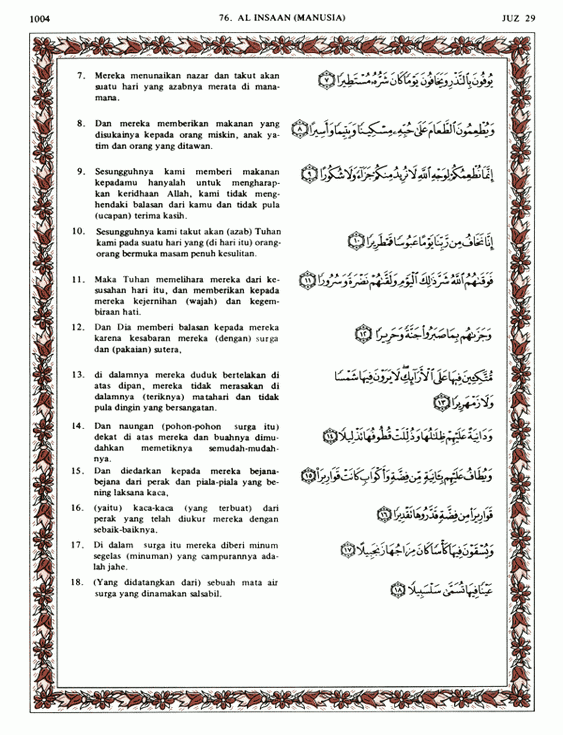 1004
76. AL INSAAN (MANUSIA)
JUZ 29
7. Mereka menunaikan nazar dan takut akan
suatu hari yang azabnya merata di mana-
mana.
يُوفُونَ بِالنَّذْرِ وَيَخَافُونَ يَوْمًا كَانَ شَرُّهُ مُسْتَطِيرًا ﴿٧﴾
8. Dan mereka memberikan makanan yang
disukainya kepada orang miskin, anak ya-
tim dan orang yang ditawan.
وَيُطْعِمُونَ الطَّعَامَ عَلَىٰ حُبِّهِ مِسْكِينًا وَيَتِيمًا وَأَسِيرًا ﴿٨﴾
9. Sesungguhnya kami memberi makanan
kepadamu hanyalah untuk mengharap-
kan keridhaan Allah, kami tidak meng-
hendaki balasan dari kamu dan tidak pula
(ucapan) terima kasih.
إِنَّمَا نُطْعِمُكُمْ لِوَجْهِ اللَّهِ لَا نُرِيدُ مِنْكُمْ جَزَاءً وَلَا شُكُورًا ﴿٩﴾
10. Sesungguhnya kami takut akan (azab) Tuhan
kami pada suatu hari yang (di hari itu) orang-
orang bermuka masam penuh kesulitan.
إِنَّا نَخَافُ مِن رَّبِّنَا يَوْمًا عَبُوسًا قَمْطَرِيرًا ﴿١٠﴾
11. Maka Tuhan memelihara mereka dari ke-
susahan hari itu, dan memberikan kepada
mereka kejernihan (wajah) dan kegem-
biraan hati.
فَوَقَىٰهُمُ اللَّهُ شَرَّ ذَٰلِكَ الْيَوْمِ وَلَقَّىٰهُمْ نَضْرَةً وَسُرُورًا ﴿١١﴾
12. Dan Dia memberi balasan kepada mereka
karena kesabaran mereka (dengan) surga
dan (pakaian) sutera,
وَجَزَىٰهُم بِمَا صَبَرُوا جَنَّةً وَحَرِيرًا ﴿١٢﴾
13. di dalamnya mereka duduk bertelakan di
atas dipan, mereka tidak merasakan di
dalamnya (teriknya) matahari dan tidak
pula dingin yang bersangatan.
مُّتَّكِئِينَ فِيهَا عَلَى الْأَرَائِكِ لَا يَرَوْنَ فِيهَا شَمْسًا
وَلَا زَمْهَرِيرًا ﴿١٣﴾
14. Dan naungan (pohon-pohon surga itu)
dekat di atas mereka dan buahnya dimu-
dahkan memetiknya semudah-mudah-
nya.
وَدَانِيَةً عَلَيْهِمْ ظِلَٰلُهَا وَذُلِّلَتْ قُطُوفُهَا تَذْلِيلًا ﴿١٤﴾
15. Dan diedarkan kepada mereka bejana-
bejana dari perak dan piala-piala yang be-
ning laksana kaca,
وَيُطَافُ عَلَيْهِم بِـَٔانِيَةٍ مِّن فِضَّةٍ وَأَكْوَابٍ كَانَتْ قَوَارِيرَا ﴿١٥﴾
16. (yaitu) kaca-kaca (yang terbuat) dari
perak yang telah diukur mereka dengan
sebaik-baiknya.
قَوَارِيرَا مِن فِضَّةٍ قَدَّرُوهَا تَقْدِيرًا ﴿١٦﴾
17. Di dalam surga itu mereka diberi minum
segelas (minuman) yang campurannya ada-
lah jahe.
وَيُسْقَوْنَ فِيهَا كَأْسًا كَانَ مِزَاجُهَا زَنجَبِيلًا ﴿١٧﴾
18. (Yang didatangkan dari) sebuah mata air
surga yang dinamakan salsabil.
عَيْنًا فِيهَا تُسَمَّىٰ سَلْسَبِيلًا ﴿١٨﴾